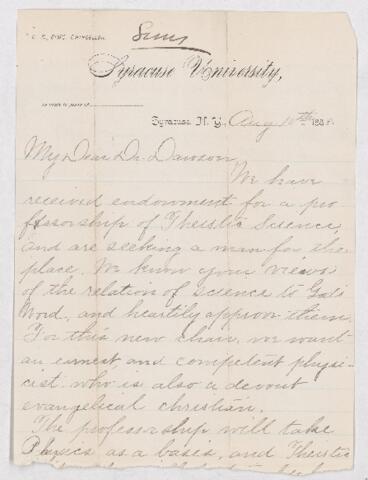 C. N. SIMS, CHANCELLOR.
Sims
Syracuse University,
Syracuse N. Y. Aug 10th 188
My Dear Dr. Dawson,
We have
received endowment for a pro
fessorship of Theistic Science,
and are seeking a man for the
place. We know your views
of the relation of science to God's
Word, and heartily approve them.
For this new chair, we want
an earnest, and competent physi
cist who is also a devout
evangelical christian.
The professorship will take
Physics as a basis, and Theistic